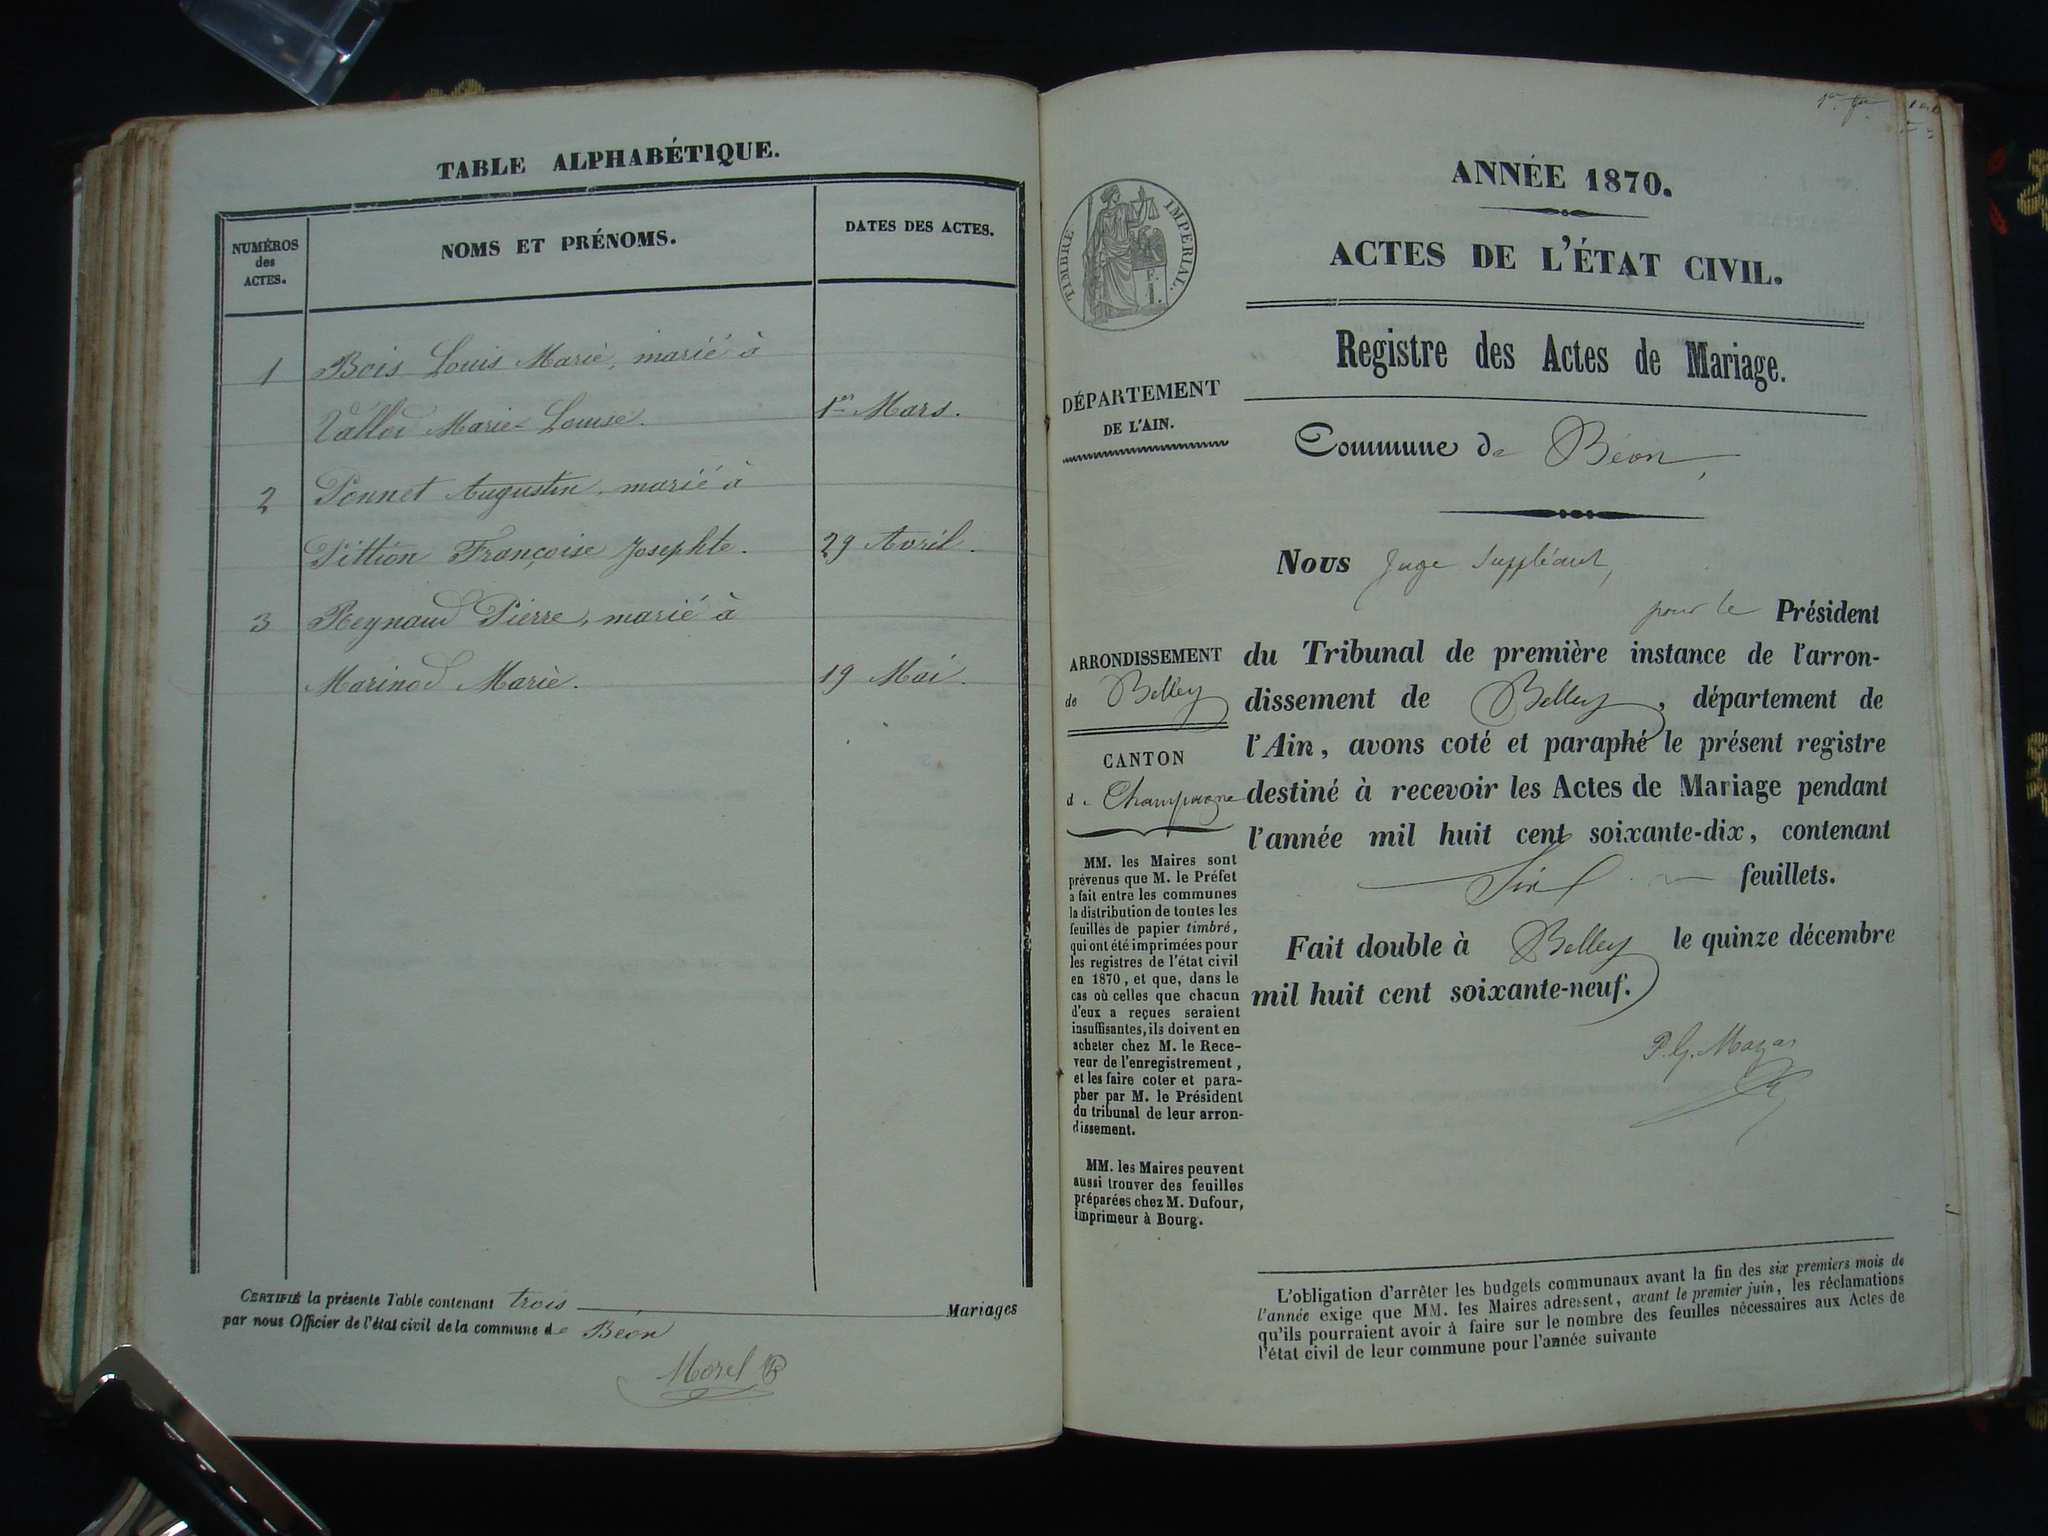 TABLE ALPHABÉTIQUE.
NUMÉROS
des
ACTES.
NOMS ET PRÉNOMS.
DATES DES ACTES.
1 Bois Louis Marie, marié à
Vallod Marie-Louise. 1er Mars.
2 Ponnet Augustin, marié à
Pittion Françoise Josephte. 29 Avril.
3 Reynaud Pierre, marié à
Marinod Marie. 19 Mai.
CERTIFIÉ la présente Table contenant trois Mariages
par nous Officier de l'état civil de la commune de Béon
Morel
TIMBRE IMPERIAL.
ANNÉE 1870.
ACTES DE L'ÉTAT CIVIL.
Registre des Actes de Mariage.
DÉPARTEMENT
DE L'AIN.
Commune de Béon,
Nous Juge Suppléant,
pour le Président
du Tribunal de première instance de l'arron-
dissement de Belley, département de
l'Ain, avons coté et paraphé le présent registre
destiné à recevoir les Actes de Mariage pendant
l'année mil huit cent soixante-dix, contenant
Six feuillets.
Fait double à Belley le quinze décembre
mil huit cent soixante-neuf.
ARRONDISSEMENT
de Belley
CANTON
de Champagne
MM. les Maires sont
prévenus que M. le Préfet
a fait entre les communes
la distribution de toutes les
feuilles de papier timbré,
qui ont été imprimées pour
les registres de l'état civil
en 1870, et que, dans le
cas où celles que chacun
d'eux a reçues seraient
insuffisantes, ils doivent en
acheter chez M. le Rece-
veur de l'enregistrement,
et les faire coter et para-
pher par M. le Président
du tribunal de leur arron-
dissement.
MM. les Maires peuvent
aussi trouver des feuilles
préparées chez M. Dufour,
imprimeur à Bourg.
L'obligation d'arrêter les budgets communaux avant la fin des six premiers mois de
l'année exige que MM. les Maires adressent, avant le premier juin, les réclamations
qu'ils pourraient avoir à faire sur le nombre des feuilles nécessaires aux Actes de
l'état civil de leur commune pour l'année suivante